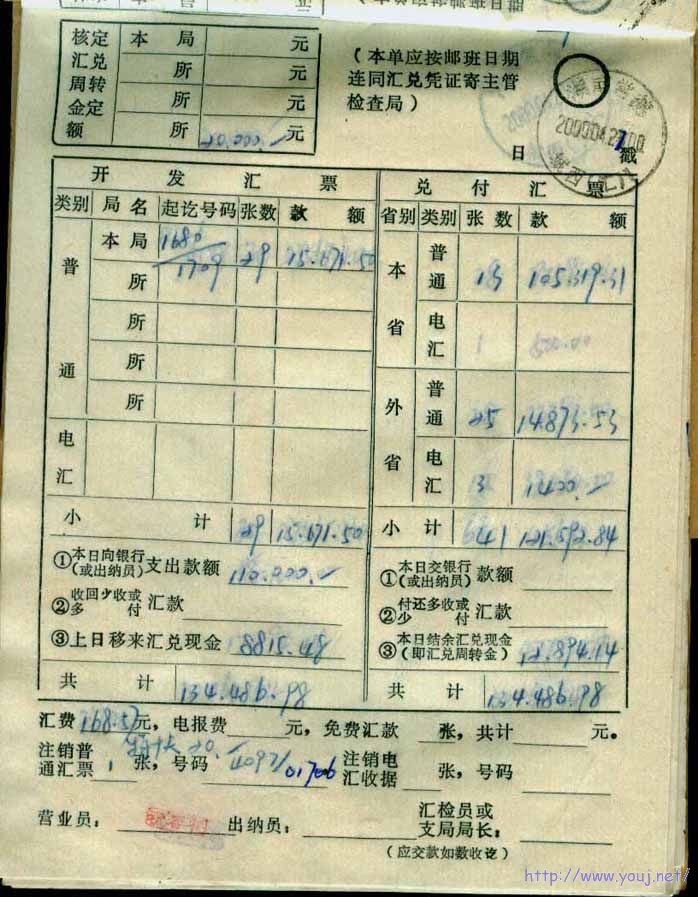 核定汇兑周转金定额 本局 元
所 元
所 元
所 20.000.- 元
(本单应按邮班日期
连同汇兑凭证寄主管
检查局)
日 戳
2000.04.27.00
开发汇票
类别 局名 起讫号码 张数 款额
普通 本局 1680/1709 29 15.671.50
所
所
所
所
电汇
小计 29 15.671.50
①本日向银行(或出纳员)支出款额 110.000.-
②收回少收或多付汇款
③上日移来汇兑现金 8815.48
共计 134.486.98
兑付汇票
省别 类别 张数 款额
本省 普通 13 105319.31
电汇 1
外省 普通 25 14873.53
电汇 3 1400.-
小计 41 121.592.84
①本日交银行(或出纳员)款额
②付还多收或少付汇款
③本日结余汇兑现金(即汇兑周转金) 12.894.14
共计 134.486.98
汇费168.57元,电报费 元,免费汇款 张,共计 元。
注销普通汇票 1 张,号码 01706 注销电汇收据 张,号码
营业员: 出纳员: 汇检员或支局局长:
(应交款如数收讫)
http://www.youj.net/